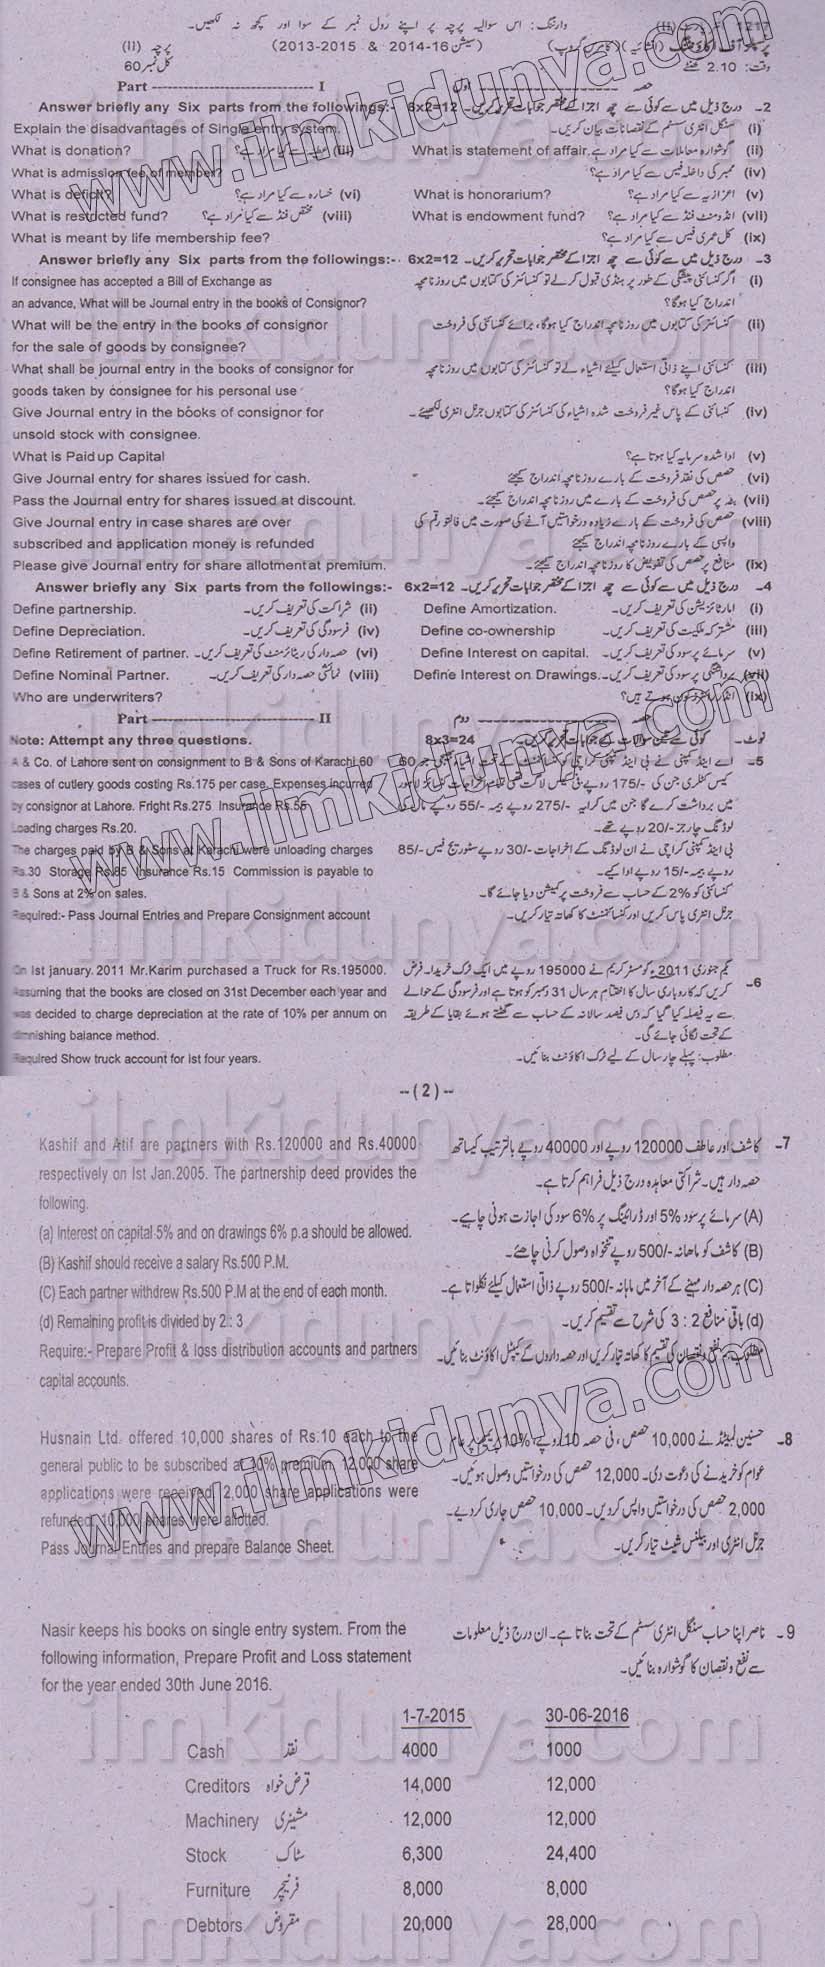 وارننگ: اس سوالیہ پرچہ پر اپنے رول نمبر کے سوا اور کچھ نہ لکھیں۔ 1217
پرچہ (II) (سیشن 16-2014 & 2015-2013) (کامرس گروپ) (انشائیہ) آف اکاؤنٹنگ
کل نمبر 60 وقت: 2.10 گھنٹے
Part ---------- I حصہ ---------- اول
Answer briefly any Six parts from the followings:- 6x2=12 2۔ درج ذیل میں سے کوئی سے چھ اجزا کے مختصر جوابات تحریر کریں۔
Explain the disadvantages of Single entry system. (i) سنگل انٹری سسٹم کے نقصانات بیان کریں۔
What is donation? (iii) عطیہ سے کیا مراد ہے؟ What is statement of affair. (ii) گوشوارہ معاملات سے کیا مراد ہے
What is admission fee of member? (iv) ممبر کی داخلہ فیس سے کیا مراد ہے؟
What is deficit? (vi) خسارہ سے کیا مراد ہے؟ What is honorarium? (v) اعزازیہ سے کیا مراد ہے؟
What is restricted fund? (viii) مختص فنڈ سے کیا مراد ہے؟ What is endowment fund? (vii) انڈومنٹ فنڈ سے کیا مراد ہے؟
What is meant by life membership fee? (ix) کل عمری فیس سے کیا مراد ہے؟
Answer briefly any Six parts from the followings:- 6x2=12 3۔ درج ذیل میں سے کوئی سے چھ اجزا کے مختصر جوابات تحریر کریں۔
If consignee has accepted a Bill of Exchange as (i) اگر کنسائنی پیشگی کے طور پر ہنڈی قبول کرلے تو کنسائنر کی کتابوں میں روزنامچہ
an advance, What will be Journal entry in the books of Consignor? اندراج کیا ہوگا؟
What will be the entry in the books of consignor (ii) کنسائنر کی کتابوں میں روزنامچہ اندراج کیا ہوگا، برائے کنسائنی کی فروخت
for the sale of goods by consignee?
What shall be journal entry in the books of consignor for (iii) کنسائنی اپنے ذاتی استعمال کیلئے اشیاء لے تو کنسائنر کی کتابوں میں روزنامچہ
goods taken by consignee for his personal use اندراج کیا ہوگا؟
Give Journal entry in the books of consignor for (iv) کنسائنی کے پاس غیر فروخت شدہ اشیاء کی کنسائنر کی کتابوں جرنل انٹری لکھیئے۔
unsold stock with consignee.
What is Paid up Capital (v) ادا شدہ سرمایہ کیا ہوتا ہے؟
Give Journal entry for shares issued for cash. (vi) حصص کی نقد فروخت کے بارے روزنامچہ اندراج کیجئے
Pass the Journal entry for shares issued at discount. (vii) بٹہ پر حصص کی فروخت کے بارے میں روزنامچہ اندراج کیجئے۔
Give Journal entry in case shares are over (viii) حصص کی فروخت کے بارے زیادہ درخواستیں آنے کی صورت میں فالتو رقم کی
subscribed and application money is refunded واپسی کے بارے روزنامچہ اندراج کیجئے
Please give Journal entry for share allotment at premium. (ix) منافع پر حصص کی تفویض کا روزنامچہ اندراج کیجئے۔
Answer briefly any Six parts from the followings:- 6x2=12 4۔ درج ذیل میں سے کوئی سے چھ اجزا کے مختصر جوابات تحریر کریں۔
Define partnership. (ii) شراکت کی تعریف کریں۔ Define Amortization. (i) امارٹائزیشن کی تعریف کریں۔
Define Depreciation. (iv) فرسودگی کی تعریف کریں۔ Define co-ownership (iii) مشترکہ ملکیت کی تعریف کریں۔
Define Retirement of partner. (vi) حصہ دار کی ریٹائرمنٹ کی تعریف کریں۔ Define Interest on capital. (v) سرمایہ پر سود کی تعریف کریں۔
Define Nominal Partner. (viii) نمائشی حصہ دار کی تعریف کریں۔ Define Interest on Drawings. (vii) پر سود کی تعریف کریں۔
Who are underwriters? (ix) انڈر رائٹرز کون ہوتے ہیں؟
Part ---------- II حصہ ---------- دوم
Note: Attempt any three questions. 8x3=24 نوٹ۔ کوئی سے تین سوالات کے جوابات تحریر کریں۔
A & Co. of Lahore sent on consignment to B & Sons of Karachi 60 5۔ اے اینڈ کمپنی نے بی اینڈ کمپنی کراچی کو 60
cases of cutlery goods costing Rs.175 per case. Expenses incurred کیس کٹلری جن کی 175/- روپے فی کیس لاگت تھی
by consignor at Lahore. Fright Rs.275 Insurance Rs.55 میں برداشت کرے گا جن میں کرایہ 275/- روپے بیمہ 55/- روپے مال کی
Loading charges Rs.20. لوڈنگ چارجز 20/- روپے تھے۔
The charges paid by B & Sons at Karachi were unloading charges بی اینڈ کمپنی کراچی نے ان لوڈنگ کے اخراجات 30/- روپے سٹوریج فیس 85/-
Rs.30 Storage Rs.85 Insurance Rs.15 Commission is payable to روپے بیمہ 15/- روپے ادا کیے۔
B & Sons at 2% on sales. کنسائنی کو 2% کے حساب سے فروخت پر کمیشن دیا جائے گا۔
Required:- Pass Journal Entries and Prepare Consignment account جرنل انٹری پاس کریں اور کنسائنمنٹ کا کھاتہ تیار کریں۔
On Ist january. 2011 Mr.Karim purchased a Truck for Rs.195000. 6۔ یکم جنوری 2011ء کو مسٹر کریم نے 195000 روپے میں ایک ٹرک خریدا۔ فرض
Assuming that the books are closed on 31st December each year and کریں کہ کاروباری سال کا اختتام ہر سال 31 دسمبر کو ہوتا ہے اور فرسودگی کے حوالے
was decided to charge depreciation at the rate of 10% per annum on سے یہ فیصلہ کیا گیا کہ دس فیصد سالانہ کے حساب سے گھٹتے ہوئے بقایا کے طریقہ
diminishing balance method. کے تحت لگائی جائے گی۔
Required Show truck account for Ist four years. مطلوب: پہلے چار سال کے لیے ٹرک اکاؤنٹ بنائیں۔
--(2)--
Kashif and Atif are partners with Rs.120000 and Rs.40000 7۔ کاشف اور عاطف 120000 روپے اور 40000 روپے بالترتیب کیساتھ
respectively on Ist Jan.2005. The partnership deed provides the حصہ دار ہیں۔ شراکتی معاہدہ درج ذیل فراہم کرتا ہے۔
following.
(a) Interest on capital 5% and on drawings 6% p.a should be allowed. (A) سرمائے پر سود 5% اور ڈرائینگ پر 6% سود کی اجازت ہونی چاہیے۔
(B) Kashif should receive a salary Rs.500 P.M. (B) کاشف کو ماہانہ 500/- روپے تنخواہ وصول کرنی چاھئے۔
(C) Each partner withdrew Rs.500 P.M at the end of each month. (C) ہر حصہ دار مہینے کے آخر میں ماہانہ 500/- روپے ذاتی استعمال کیلئے نکلواتا ہے۔
(d) Remaining profit is divided by 2 : 3 (d) باقی منافع 2 : 3 کی شرح سے تقسیم کریں۔
Require:- Prepare Profit & loss distribution accounts and partners مطلوب: ہم نفع و نقصان کی تقسیم کا کھاتہ تیار کریں اور حصہ داروں کے کیپٹل اکاؤنٹ بنائیں۔
capital accounts.
Husnain Ltd. offered 10,000 shares of Rs.10 each to the 8۔ حسنین لمیٹڈ نے 10,000 حصص، فی حصہ 10 روپے، 10% پریمیم پر عام
general public to be subscribed at 10% premium. 12,000 share عوام کو خریدنے کی دعوت دی۔ 12,000 حصص کی درخواستیں وصول ہوئیں۔
applications were received. 2,000 share applications were 2,000 حصص کی درخواستیں واپس کردیں۔ 10,000 حصص جاری کردیے۔
refunded. 10,000 shares were allotted.
Pass Journal Entries and prepare Balance Sheet. جرنل انٹری اور بیلنس شیٹ تیار کریں۔
Nasir keeps his books on single entry system. From the 9۔ ناصر اپنا حساب سنگل انٹری سسٹم کے تحت بناتا ہے۔ ان درج ذیل معلومات
following information, Prepare Profit and Loss statement سے نفع و نقصان کا گوشوارہ بنائیں۔
for the year ended 30th June 2016.
1-7-2015 30-06-2016
Cash نقد 4000 1000
Creditors قرض خواہ 14,000 12,000
Machinery مشینری 12,000 12,000
Stock سٹاک 6,300 24,400
Furniture فرنیچر 8,000 8,000
Debtors مقروض 20,000 28,000
www.ilmkidunya.com
www.ilmkidunya.com
www.ilmkidunya.com
ilmkidunya.com